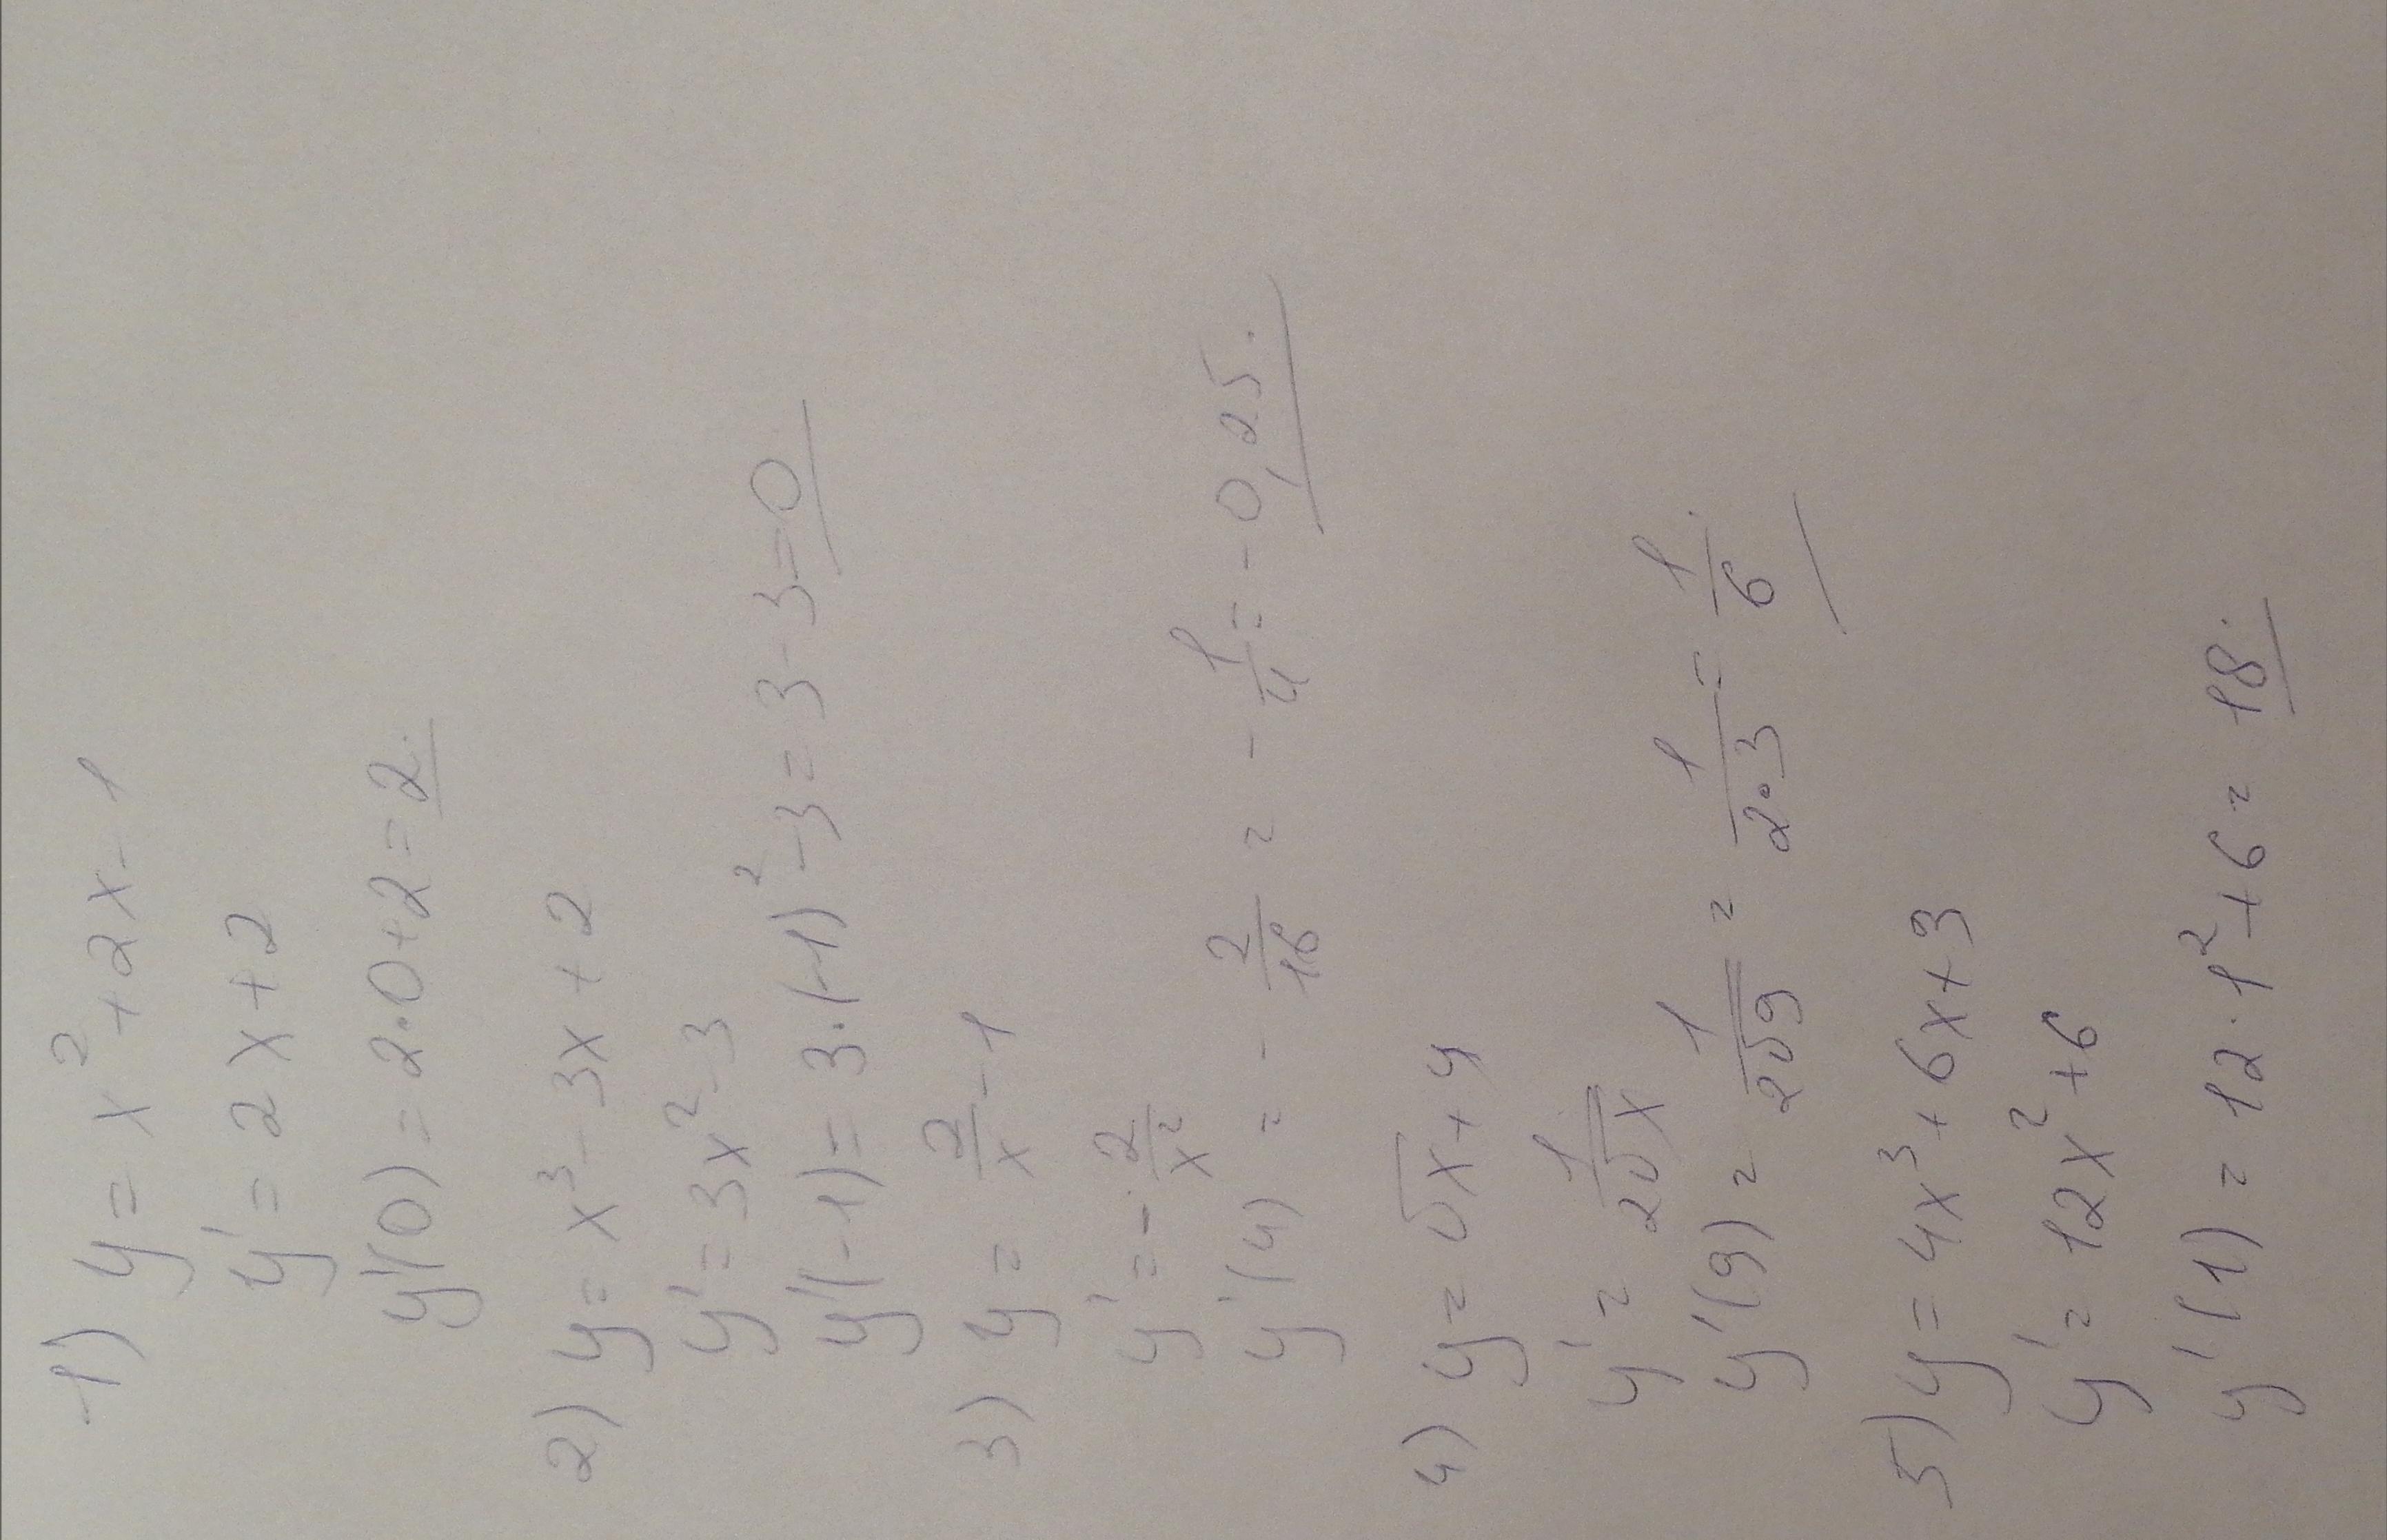 1) y = x² + 2x - 1
y' = 2x + 2
y'(0) = 2·0+2 = 2.
2) y = x³ - 3x + 2
y' = 3x² - 3
y'(-1) = 3·(-1)² - 3 = 3 - 3 = 0
3) y = 2/x - 1
y' = - 2/x²
y'(4) = - 2/16 = - 1/4 = - 0,25.
4) y = √x + 4
y' = 1/(2√x)
y'(9) = 1/(2√9) = 1/(2·3) = 1/6.
5) y = 4x³ + 6x + 3
y' = 12x² + 6
y'(1) = 12·1² + 6 = 18.